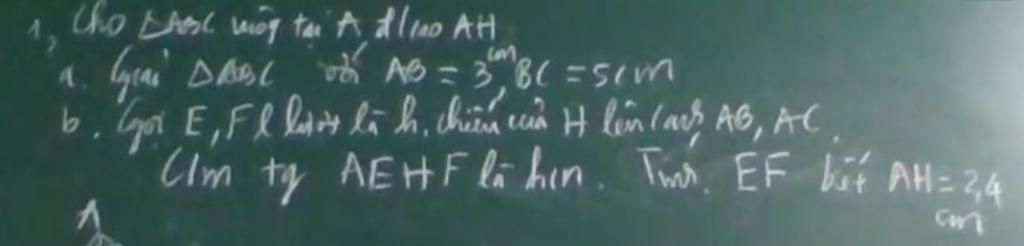 1, Cho △ABC vuông tại A đ/cao AH
a. Giải △ABC với AB = 3cm, BC = 5cm
b. Gọi E, F l lượt là h. chiếu của H lên cạnh AB, AC.
C/m tg AEHF là hcn. Tính EF biết AH = 2,4 cm
A